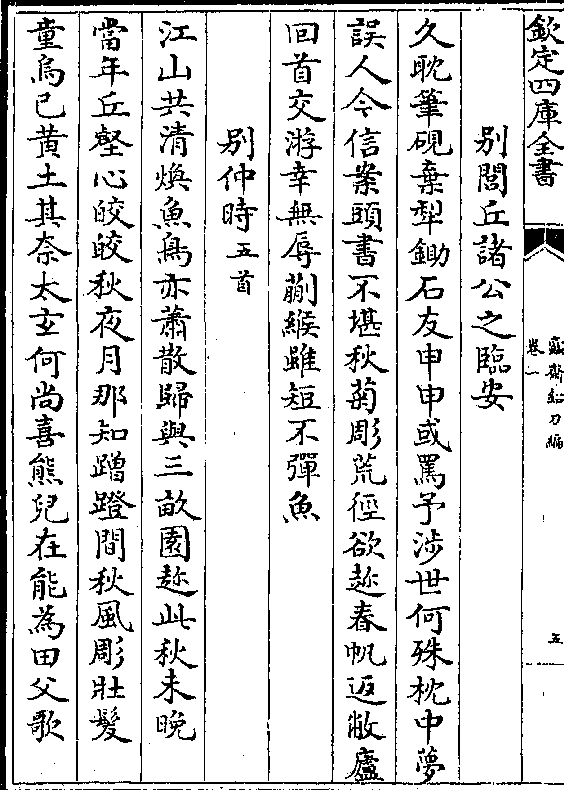 欽定四庫全書
蠧齋鉛刀編
卷一
五
別閭丘諸公之臨安
久耽筆硯棄犁鋤石友申申或罵予涉世何殊枕中夢
誤人今信案頭書不堪秋菊彫荒徑欲趂春帆返敝廬
回首交游幸無辱蒯緱雖短不彈魚
別仲時五首
江山共清煥魚鳥亦蕭散歸與三畝園趂此秋未晚
當年丘壑心皎皎秋夜月那知蹭蹬間秋風彫壯髮
童烏已黄土其奈太玄何尚喜熊兒在能為田父歌